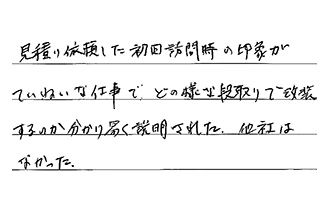 見積り依頼した初回訪問時の印象が
ていねいな仕事で、どの様な段取りで改装
するのか分かり易く説明された。他社は
なかった。